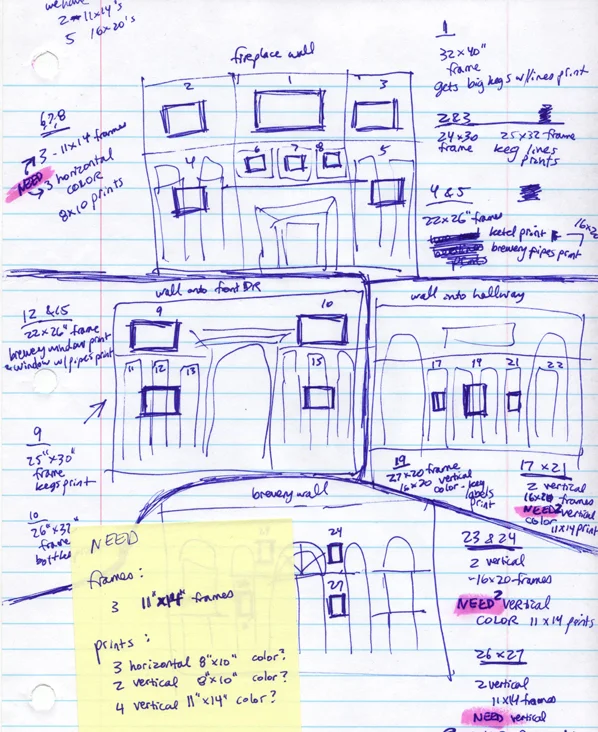 we have
2 - 11x14's
5 16x20's
fireplace wall
1
32x40"
frame
gets big kegs w/lines print
2&3
24x30 25x32 frame
frame keg lines
prints
4 & 5
22x26" frames
ketel print
brewery pipes print
6,7,8
3 - 11x14 frames
NEED 3 horizontal
COLOR
8x10 prints
2 1 3
4 6 7 8 5
wall onto front DR
9 10
11 12 13 15
wall into hallway
17 19 21 22
12 & 15
22x26" frame
brewery window print
& window w/pipes print
9
25"x30"
frame
kegs print
10
26"x32"
frame
bottles
19
27x20 frame
16x20 vertical
color - keg
labels
print
17 x 21
2 vertical
16x20 frames
NEED 2 vertical
color 11x14 print
brewery wall
24
27
23 & 24
2 vertical
-16x20 frames
NEED 2 vertical
COLOR 11x14 prints
26 x 27
2 vertical
11x14 frames
NEED vertical
NEED
frames:
3 11"x14" frames
prints:
3 horizontal 8"x10" color?
2 vertical 8"x10" color?
4 vertical 11"x14" color?